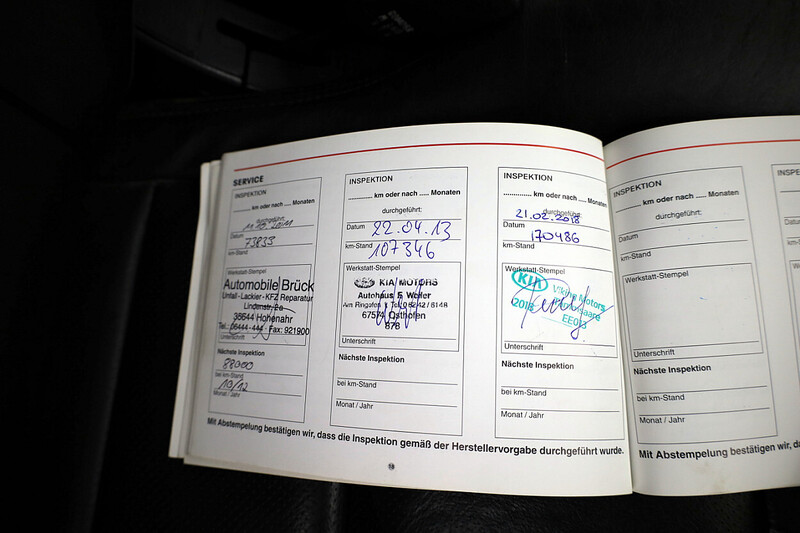 SERVICE
INSPEKTION
........ km oder nach ..... Monaten
durchgeführt:
Datum
73833
km-Stand
Werkstatt-Stempel
Automobile Brück
Unfall - Lackier - KFZ Reparatur
Lindenstr. 2a
35644 Hohenahr
Tel.: 06444- Fax: 921900
Unterschrift
Nächste Inspektion
88000
bei km-Stand
10/12
Monat / Jahr
INSPEKTION
.............. km oder nach ..... Monaten
durchgeführt:
Datum 22.04.13
km-Stand 107346
Werkstatt-Stempel
KIA MOTORS
Autohaus
Am Ringofen Tel 06242 / 6148
67574 Osthofen
878
Unterschrift
Nächste Inspektion
bei km-Stand
Monat / Jahr
INSPEKTION
.............. km oder nach ..... Monaten
durchgeführt:
21.02.2018
Datum
170486
km-Stand
Werkstatt-Stempel
KIA Viking Motors
EE013
Unterschrift
Nächste Inspektion
bei km-Stand
Monat / Jahr
Mit Abstempelung bestätigen wir, dass die Inspektion gemäß der Herstellervorgabe durchgeführt wurde.
18
INSPEKTION
.............. km oder nach ..... Monaten
durchgeführt:
Datum
km-Stand
Werkstatt-Stempel
Unterschrift
Nächste Inspektion
bei km-Stand
Monat / Jahr
Mit Abstempelung bestätigen wir, da